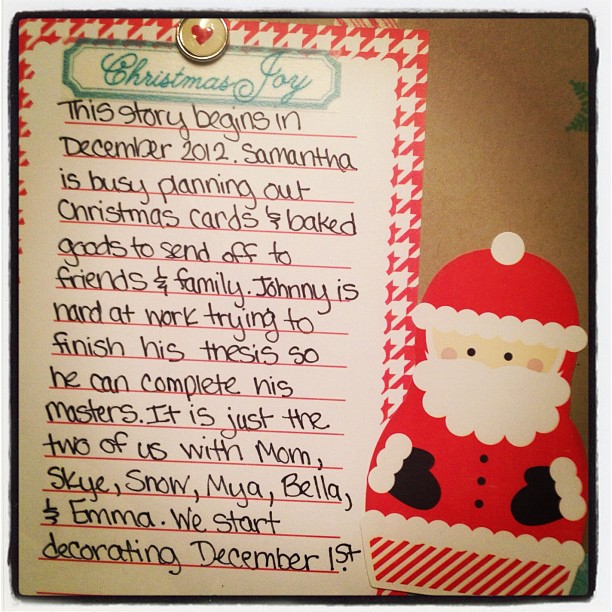 Christmas Joy
This story begins in
December 2012. Samantha
is busy planning out
Christmas cards & baked
goods to send off to
friends & family. Johnny is
hard at work trying to
finish his thesis so
he can complete his
masters. It is just the
two of us with Mom,
Skye, Snow, Mya, Bella,
& Emma. We start
decorating December 1st.